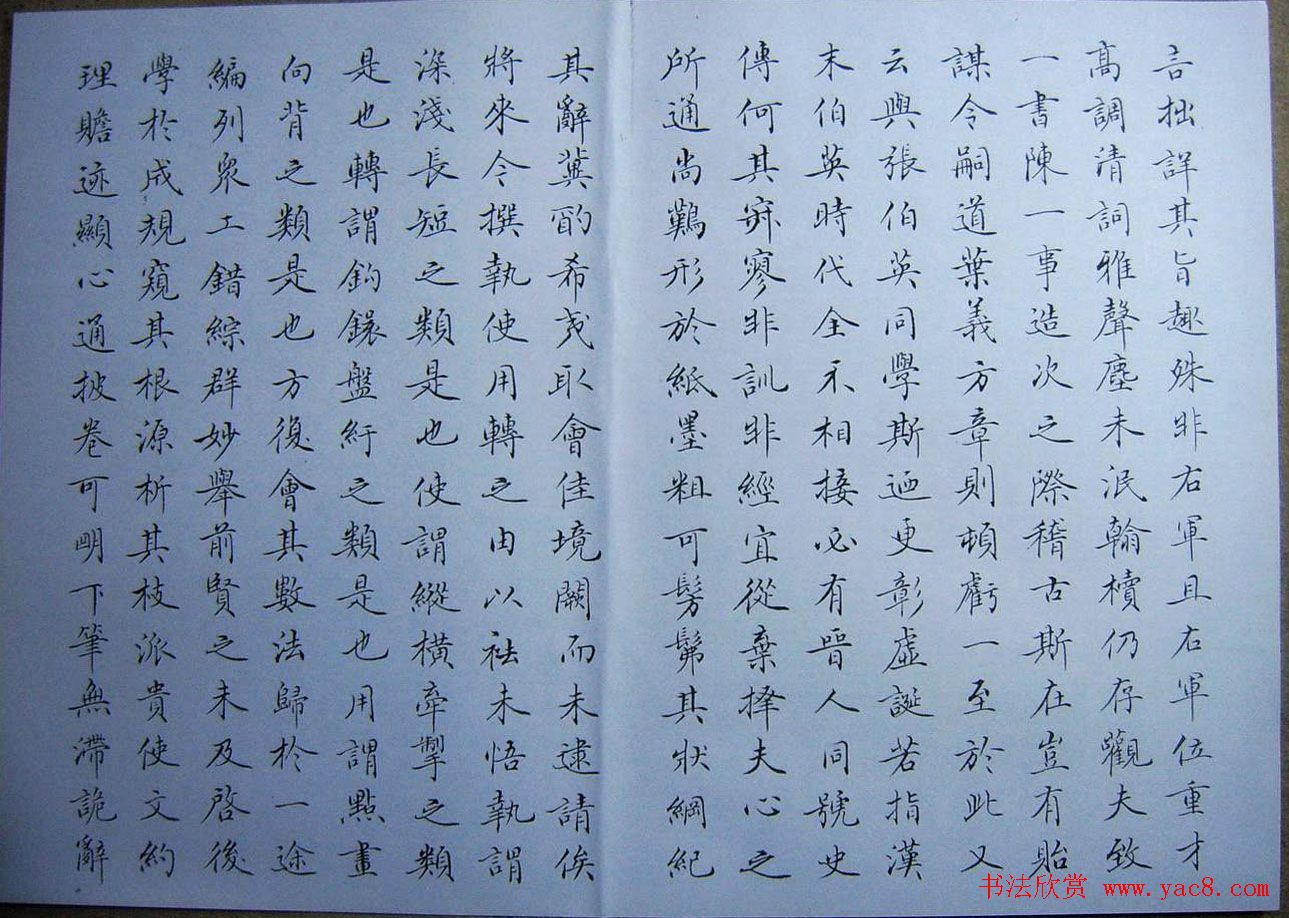 言拙詳其旨趣殊非右軍且右軍位重才
高調清詞雅聲塵未泯翰櫝仍存觀夫致
一書陳一事造次之際稽古斯在豈有貽
謀令嗣道葉義方章則頓虧一至於此又
云與張伯英同學斯迺更彰虛誕若指漢
末伯英時代全不相接必有晉人同號史
傳何其寂寥非訓非經宜從棄擇夫心之
所通尚難形於紙墨粗可髣髴其狀綱紀
其辭冀酌希夷取會佳境闕而未逮請俟
將來今撰執使用轉之由以袪未悟執謂
深淺長短之類是也使謂縱橫牽掣之類
是也轉謂鉤鐶盤紆之類是也用謂點畫
向背之類是也方復會其數法歸於一途
編列眾工錯綜群妙舉前賢之未及啓後
學於成規窺其根源析其枝派貴使文約
理贍迹顯心通披卷可明下筆無滯詭辭
书法欣赏 www.yac8.com